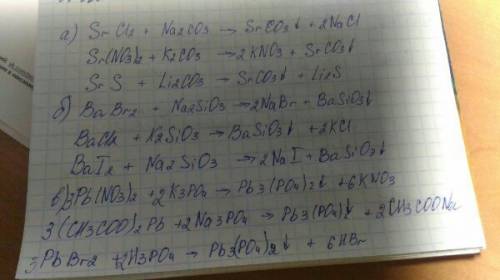 а) SrCl2 + Na2CO3 → SrCO3↓ + 2NaCl
Sr(NO3)2 + K2CO3 → 2KNO3 + SrCO3↓
SrS + Li2CO3 → SrCO3↓ + Li2S
б) BaBr2 + Na2SiO3 → 2NaBr + BaSiO3↓
BaCl2 + K2SiO3 → BaSiO3↓ + 2KCl
BaI2 + Na2SiO3 → 2NaI + BaSiO3↓
в) 3Pb(NO3)2 + 2K3PO4 → Pb3(PO4)2↓ + 6KNO3
3(CH3COO)2Pb + 2Na3PO4 → Pb3(PO4)2↓ + 2CH3COONa
3PbBr2 + 2H3PO4 → Pb3(PO4)2↓ + 6HBr